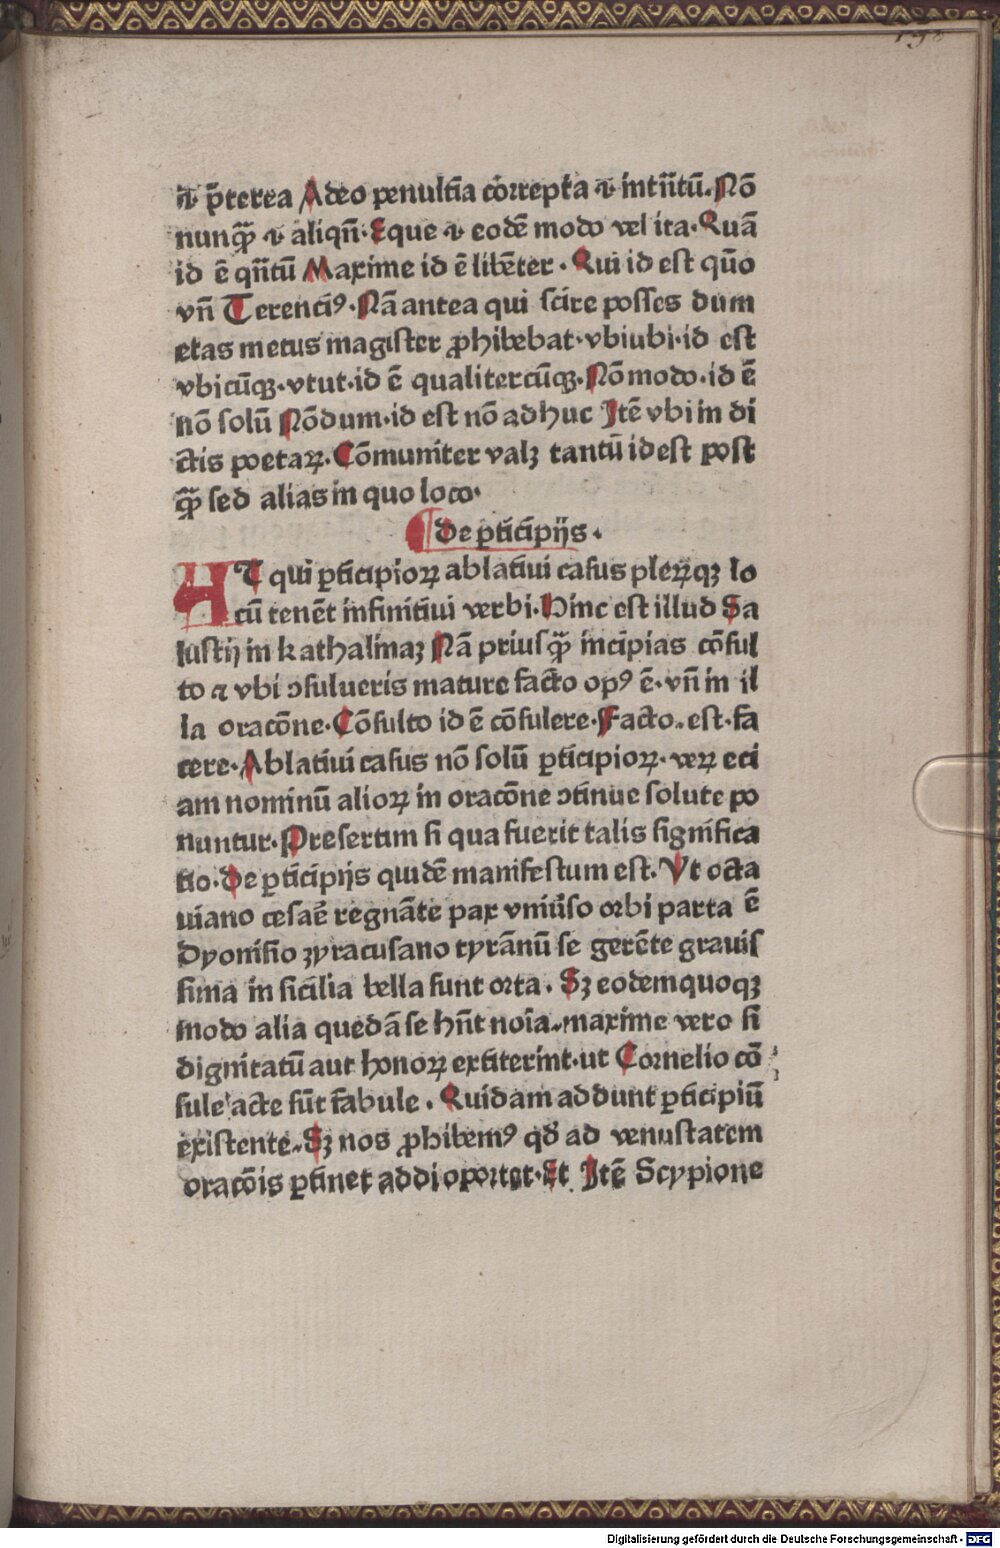 158
⁊ p̃terea Adeo penultĩa cõrrepta ⁊ intñtũ. Nõ
nunqᷓ ⁊ aliqñ. Eque ⁊ eodẽ modo vel ita. Quã
id ẽ qñtũ Maxime id ẽ libẽter. Qui id est quõo
vñ Terenciꝰ. Nã antea qui scire posses dum
etas metus magister ꝓhibebat. vbiubi. id est
vbicũqꝫ. vtut. id ẽ qualitercũqꝫ. Nõ modo. id ẽ
nõ solũ Nõdum. id est nõ adhuc Itẽ vbi in di
ctis poetaꝝ. Cõmuniter valꝫ tantũ id est post
qᷓ sed alias in quo loco.
De ꝑticipijs.
AT qui ꝑticipioꝝ ablatiui casus pleꝝqꝫ lo
cũ tenẽt infinitiui verbi. Hinc est illud Sa
lustij in kathalinaꝫ Nã priusqᷓ incipias cõsul
to ⁊ vbi ꝯsulueris mature facto opꝰ ẽ. vñ in il
la oracõne. Cõsulto id ẽ cõsulere. Facto. est. fa
cere. Ablatiui casus nõ solũ ꝑticipioꝝ. veꝝ eci
am nominũ alioꝝ in oracõne ꝯtinue solute po
nuntur. Presertim si qua fuerit talis significa
tio. De ꝑticipijs quidẽ manifestum est. Vt octa
uiano cesaẽ regnãte pax vniũso orbi parta ẽ
Dyonisio zyracusano tyrãnũ se gerẽte grauis
sima in sicilia bella sunt orta. Sꝫ eodem quoqꝫ
modo alia quedã se hñt noĩa. maxime vero si
dignitatũ aut honoꝝ extiterint. ut Cornelio cõ
sule acte sũt fabule. Quidam addunt ꝑticipiũ
existente. Sꝫ nos ꝓhibemꝰ qđ ad venustatem
oracõis ꝑtinet addi oportet. Et Itẽ Scypione
Digitalisierung gefördert durch die Deutsche Forschungsgemeinschaft - DFG